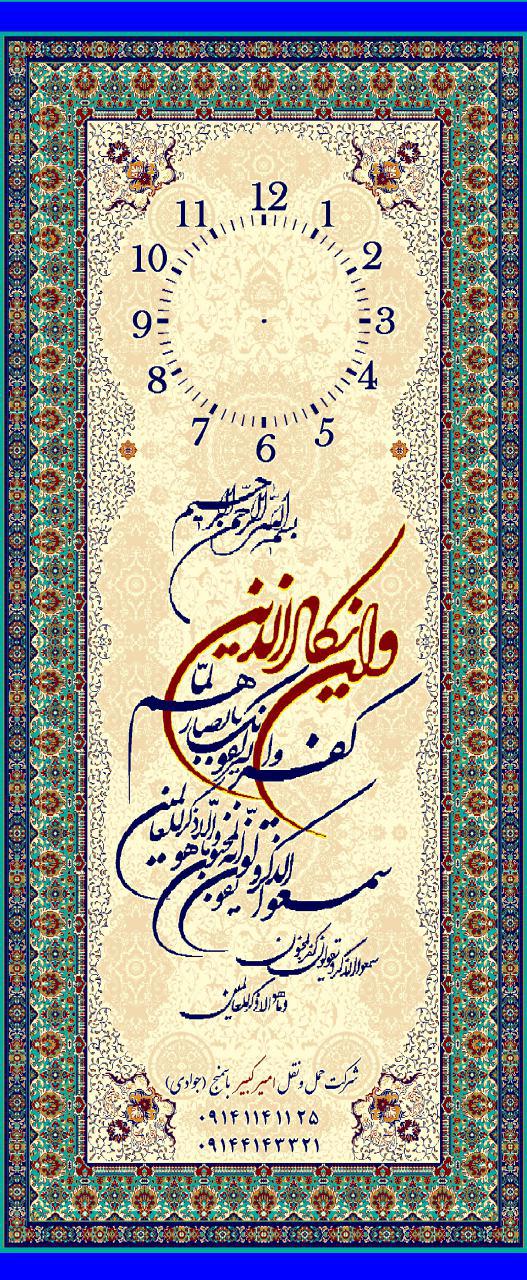 12
11 1
10 2
9 3
8 4
7 5
6
بسم الله الرحمن الرحیم
وان یکاد الذین
کفروا لیزلقونک بابصارهم لما
سمعوا الذکر و یقولون انه لمجنون و ما هو الا ذکر للعالمین
وما هو الا ذکر للعالمین
شرکت حمل و نقل امیرکبیر باسمنج (جوادی)
۰۹۱۴۱۱۴۱۱۲۵
۰۹۱۴۴۱۴۳۳۲۱